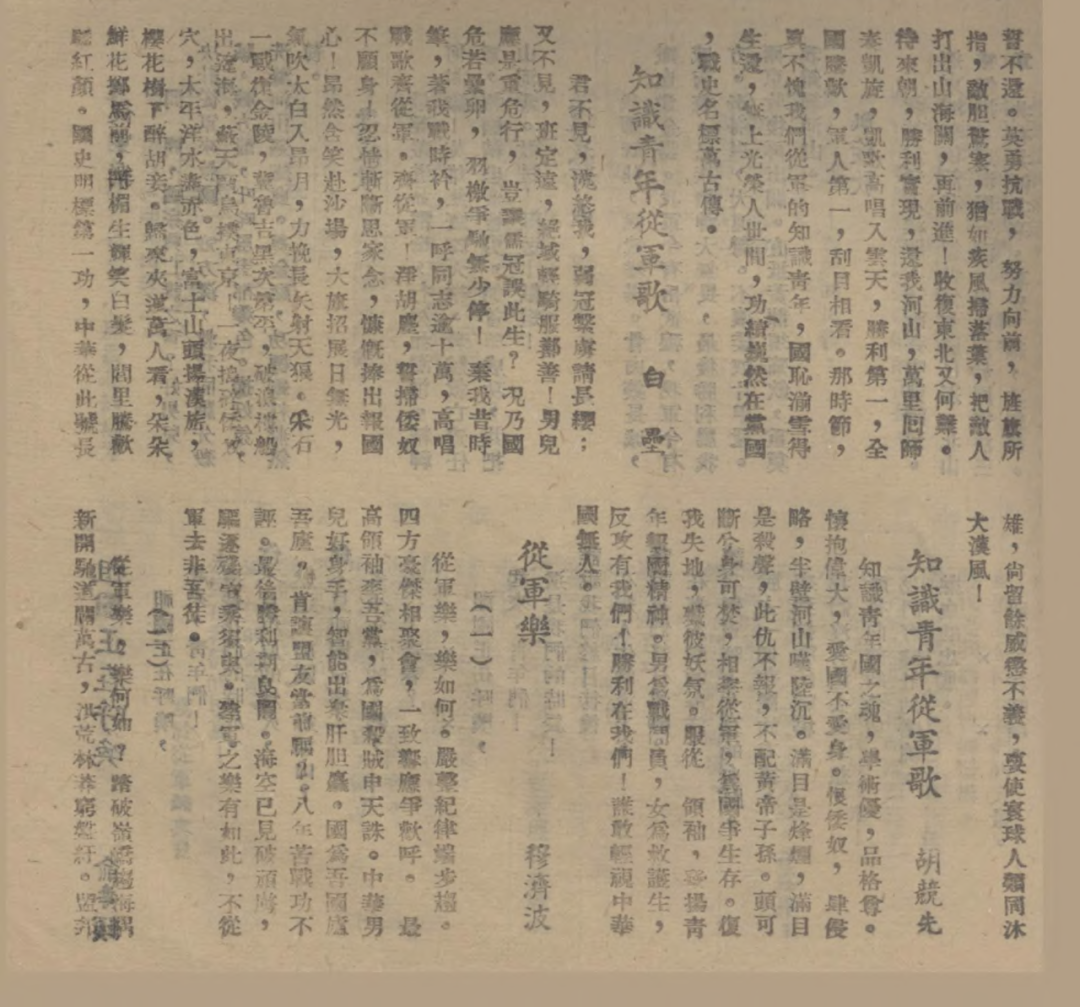 誓不還。英勇抗戰，努力向前，旌旗所
指，敵胆驚寒，猶如疾風掃落葉，把敵人
打出山海關，再前進！收復東北又何難。
待來朝，勝利實現，還我河山，萬里回師
奏凱旋，凱歌高唱入雲天，勝利第一，全
國騰歡，軍人第一，刮目相看。那時節，
眞不愧我們從軍的知識青年，國恥湔雪得
生還，無上光榮人世間，功績巍然在黨國
，戰史名標萬古傳。
知識青年從軍歌 白堊
君不見，漢終我，弱冠繫虜請長纓；
又不見，班定遠，絕域輕騎服鄯善！男兒
應是重危行，豈讓儒冠誤此生？况乃國
危若疊卵，羽檄爭馳無少停！棄我昔時
筆，著我戰時衿，一呼同志逾十萬，高唱
戰歌齊從軍。齊從軍！淨胡塵，誓掃倭奴
不顧身！忍情斬斷思家念，慷慨捧出報國
心！昂然含笑赴沙場，大旗招展日無光，
氣吹太白入昂月，力挽長矢射天狼。采石
一戰復金陵，冀魯吉黑次第平，破浪樓船
出遼海，蔽天
穴，太平洋水
櫻花樹下醉胡
鮮花擲馬前，
紅顏。國史明標第一功，中華從此號長
雄，尙留餘威懲不義，要使寰球人類同沐
大漢風！
知識青年從軍歌 胡競先
知識青年國之魂，學術優，品格尊。
懷抱偉大，愛國不愛身。恨倭奴，肆侵
略，半壁河山嘆陸沉。滿目是烽烟，滿目
是殺聲，此仇不報，不配黃帝子孫。頭可
斷分身可焚，相率從軍，爲國爭生存。復
我失地，殲彼妖氛。服從 領袖，發揚青
年報國精神。男爲戰鬥員，女爲救護生，
反攻有我們！勝利在我們！誰敢輕視中華
國無人。
從軍樂 穆濟波
（一）
從軍樂，樂如何。嚴聲紀律端步趨。
四方豪傑相聚會，一致響應爭歡呼。 最
高領袖率吾黨，爲國殺賊申天誅。中華男
兒好身手，智能出衆肝胆麤。國爲吾國廬
吾廬。肯讓盟友當前驅。八年苦戰功不
誣。最後勝利 海空已見破頑虜，
驅逐 之樂有如此，不從
軍去非吾徒。
（二）
從軍樂，樂何如？踏破嶺
新開馳道闢萬古，洪荒林莽窮